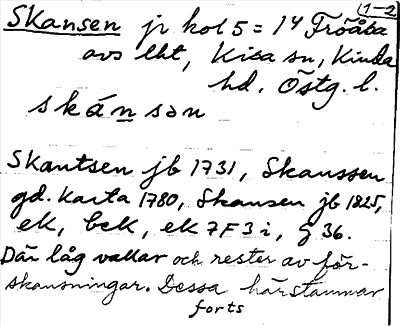 (1-2)
Skansen jr kol 5 = 14 Fröåsa
avs lht, Kisa sn, Kinda
hd, Östg. l.
skánsən
Skantsen jb 1731, Skanssen
gd. Karta 1780, Skansen jb 1825,
ek, bek, ek 7F3i, g 36.
Där låg vallar och rester av för-
skansningar. Dessa härstammar
forts